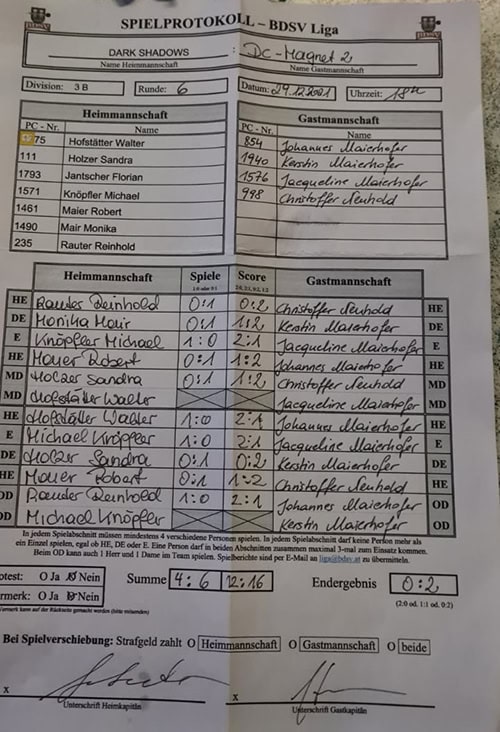 SPIELPROTOKOLL – BDSV Liga
DARK SHADOWS : DC-Magnet 2
Name Heimmannschaft Name Gastmannschaft
Division: 3 B Runde: 6 Datum: 29.12.2021 Uhrzeit: 18h
Heimmannschaft Gastmannschaft
PC - Nr. Name PC - Nr. Name
75 Hofstätter Walter 854 Johannes Maierhofer
111 Holzer Sandra 1940 Kerstin Maierhofer
1793 Jantscher Florian 1576 Jacqueline Maierhofer
1571 Knöpfler Michael 998 Christoffer Neuhold
1461 Maier Robert
1490 Mair Monika
235 Rauter Reinhold
Heimmannschaft Spiele Score Gastmannschaft
1:0 oder 0:1 2:0, 2:1, 0:2, 1:2
HE Rauter Reinhold 0:1 0:2 Christoffer Neuhold HE
DE Monika Mair 0:1 1:2 Kerstin Maierhofer DE
E Knöpfler Michael 1:0 2:1 Jacqueline Maierhofer E
HE Maier Robert 0:1 1:2 Johannes Maierhofer HE
MD Holzer Sandra 0:1 1:2 Christoffer Neuhold MD
MD Hofstätter Walter Jacqueline Maierhofer MD
HE Hofstätter Walter 1:0 2:1 Johannes Maierhofer HE
E Michael Knöpfler 1:0 2:1 Jacqueline Maierhofer E
DE Holzer Sandra 0:1 0:2 Kerstin Maierhofer DE
HE Maier Robert 0:1 1:2 Christoffer Neuhold HE
OD Rauter Reinhold 1:0 2:1 Johannes Maierhofer OD
OD Michael Knöpfler Kerstin Maierhofer OD
In jedem Spielabschnitt müssen mindestens 4 verschiedene Personen spielen. In jedem Spielabschnitt darf keine Person mehr als
ein Einzel spielen, egal ob HE, DE oder E. Eine Person darf in beiden Abschnitten zusammen maximal 3-mal zum Einsatz kommen.
Beim OD kann auch 1 Herr und 1 Dame im Team spielen. Spielberichte sind per E-Mail an liga@bdsv.at zu übermitteln.
otest: O Ja O Nein Summe 4:6 12:16 Endergebnis 0:2
rmerk: O Ja O Nein (2:0 od. 1:1 od. 0:2)
Vermerk kann auf der Rückseite gemacht werden (bitte mitsenden)
Bei Spielverschiebung: Strafgeld zahlt O Heimmannschaft O Gastmannschaft O beide
x x
Unterschrift Heimkapitän Unterschrift Gastkapitän